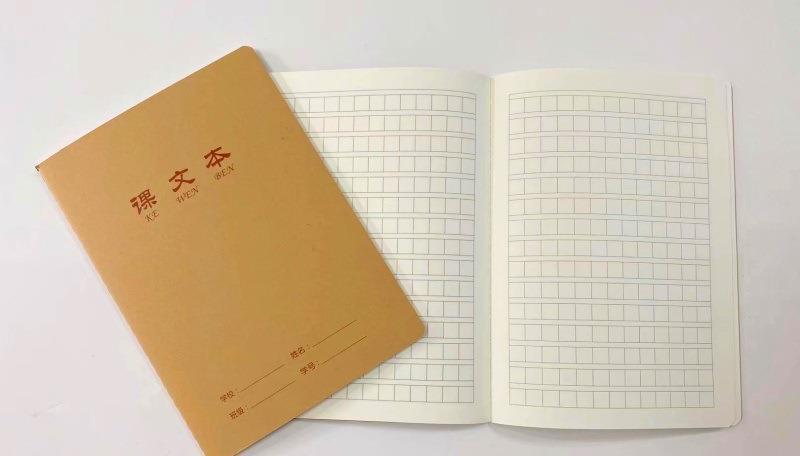 课文本
KE WEN BEN
学校：
姓名：
班级：
学号：